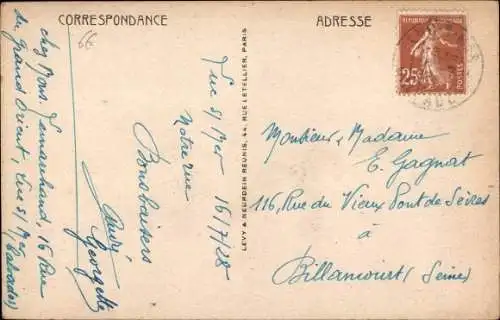 CORRESPONDANCE
ADRESSE
66
Luc S/Mer 16/7/28
Notre rue
Bons baisers
André
Georgette
chez Mons. Lemarchand, 16 Rue
du Grand Orient, Luc S/Mer
Calvados
LEVY & NEURDEIN REUNIS, 44, RUE LETELLIER, PARIS
REPUBLIQUE FRANÇAISE
25c
POSTES
Monsieur, Madame
E. Gagnat
116, Rue du Vieux Pont de Sèvres
à
Billancourt (Seine)